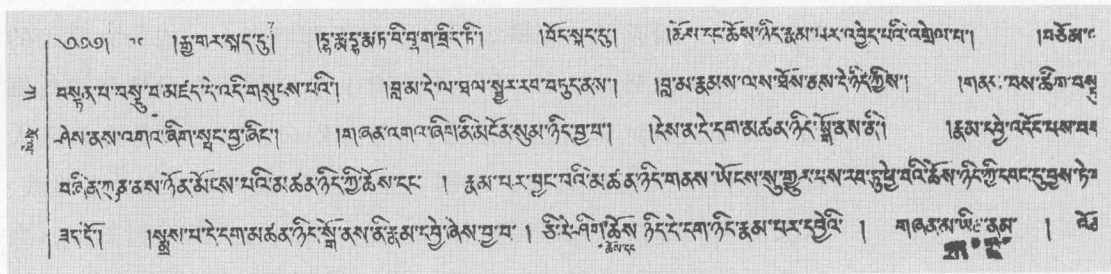 ༄༅༅། །རྒྱ་གར་སྐད་དུ། །དྷརྨ་དྷརྨ་ཏ་བི་བྷཱ་ག་བྲྀཏྟི། །བོད་སྐད་དུ། །ཆོས་དང་ཆོས་ཉིད་རྣམ་པར་འབྱེད་པའི་འགྲེལ་པ། །བཅོམ་
བསྟན་པ་བསྡུ་བ་མཛད་དེ་འདི་གསུངས་པའི། །བླ་མ་དེ་ལ་ཐལ་སྦྱར་རབ་བཏུད་ནས། །བླ་མ་རྣམས་ལས་ཐོས་ནས་དེ་ཉིད་ཀྱིས། །གནང་བས་ཚིག་བསྡུ
ཤེས་ནས་འགའ་ཞིག་སྤང་བྱ་ཞིང་། །གཞན་འགའ་ཞིག་ནི་མངོན་སུམ་ཉིད་བྱ་བ། །དེས་ན་དེ་དག་མཚན་ཉིད་སྒོ་ནས་ནི། །རྣམ་དབྱེ་འདོད་པས་བས
བཞིན་ཀུན་ནས་ཉོན་མོངས་པའི་མཚན་ཉིད་ཀྱི་ཆོས་དང་ ། རྣམ་པར་བྱང་བའི་མཚན་ཉིད་གནས་ཡོངས་སུ་གྱུར་པས་རབ་ཏུ་ཕྱེ་བའི་ཆོས་ཉིད་ཀྱི་དབང་དུ་བྱས་ཏེ་
ཟད་དོ། །སྨྲས་པ་དེ་དག་མཚན་ཉིད་སྒོ་ནས་ནི་རྣམ་དབྱེ་ཞེས་བྱ་བ་ ། ཅི་རེ་ཤིག་ཆོས་ཉིད་དེ་དག་ཉིད་རྣམ་པར་དབྱེའི ། གཞན་མ་ཡིན་ནམ་ །
ཆོས་དང